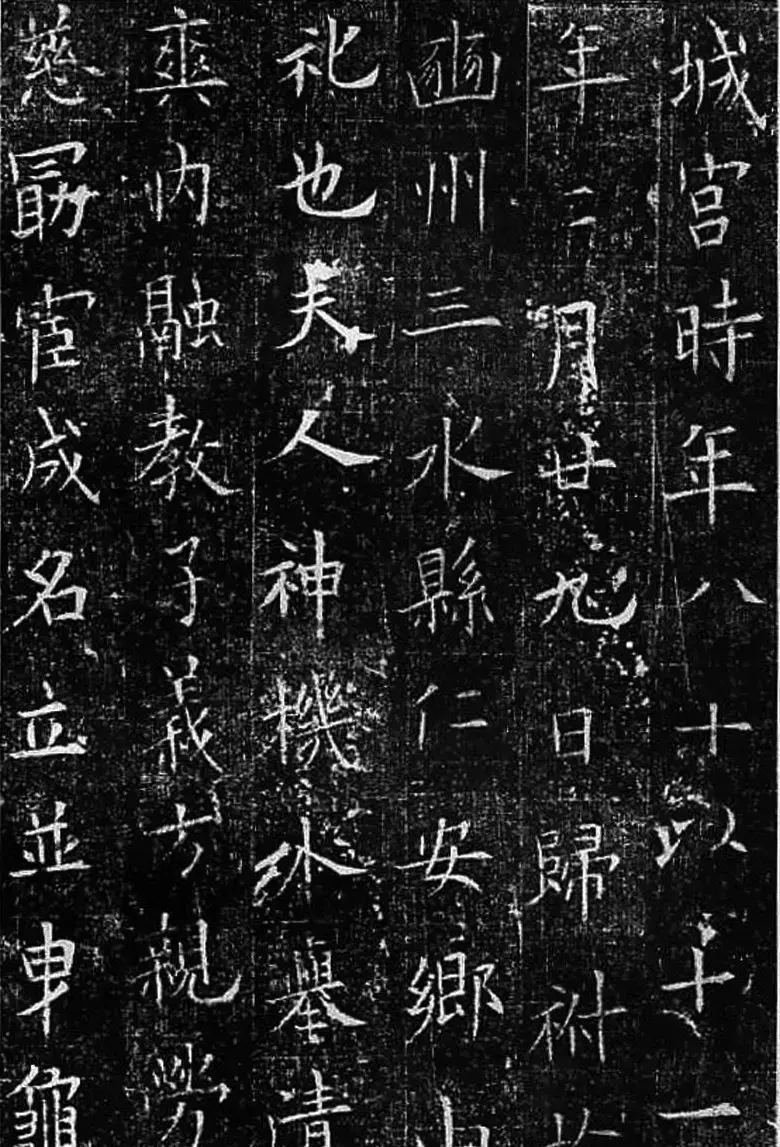 城宮時年八十以十一
年二月廿九日歸祔於
豳州三水縣仁安鄉
祀也夫人神機外舉清
爽内融教子義方親勞
慈勗宦成名立並申龜